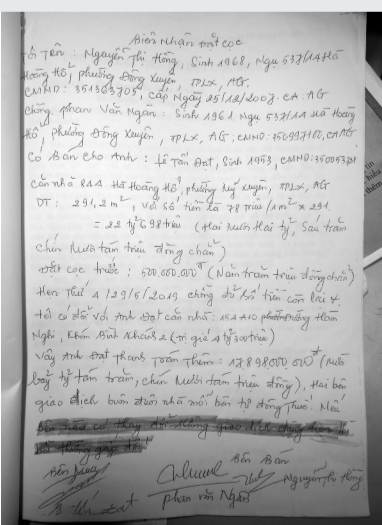 Biên Nhận Đặt Cọc
Tôi Tên : Nguyễn Thị Hồng, Sinh 1968, Ngụ 537/14 Hà
Hoàng Hổ, phường Đông Xuyên, TPLX, AG.
CMND: 351363705, cấp Ngày 25/12/2007. CA. AG
Chồng, phan Văn Ngàn : Sinh 1961 Ngụ 537/14 Hà Hoàng
Hổ, phường Đông Xuyên, TPLX, AG, CMND: 350997100, CAAG
Có Bán cho Anh : Lê Tấn Đạt, Sinh 1953, CMND:
căn nhà 8AA Hà Hoàng Hổ, phường Mỹ Xuyên, TPLX, AG
DT : 291,2m², với số tiền là 78 Triệu /1m² x 291
= 22 tỷ 698 triệu (Hai Mươi Hai tỷ, Sáu trăm
chín Mươi tám triệu đồng chẵn)
Đặt cọc trước : 500.000.000đ (Năm trăm triệu đồng chẵn)
Hẹn Thứ 4 /29/5/2019 chồng đủ số tiền còn lại
tôi có đổi với Anh Đạt căn nhà : 15A Hàm
Nghi, Khóm Bình Khánh 2 (Trị giá 4 tỷ 300 triệu)
Vậy Anh Đạt Thanh Toán Thêm : 17.898.000.000đ (Mười
bảy tỷ tám trăm, chín Mươi tám triệu đồng), Hai bên
giao dịch buôn nhà môi bên tự đồng Thuế. Nếu
Bên nào có thay đổi không giao dịch
bồi thường gấp đôi
Bên Mua
Bên Bán
Lê Tấn Đạt
phan văn Ngàn
Nguyễn Thị Hồng